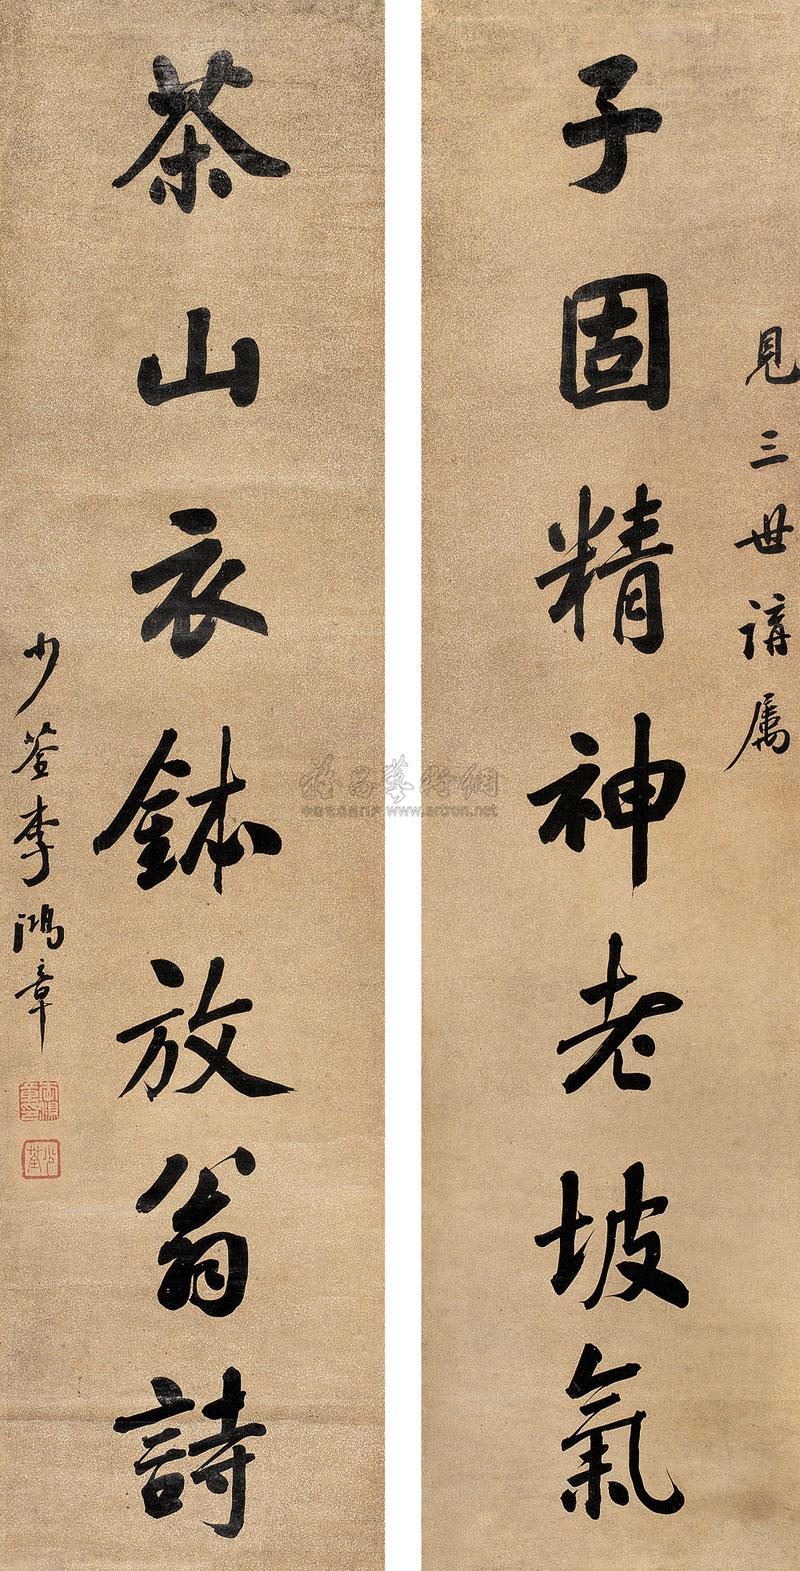 見三世講屬
子固精神老坡氣
茶山衣鉢放翁詩
少荃李鴻章
少荃
www.artron.net